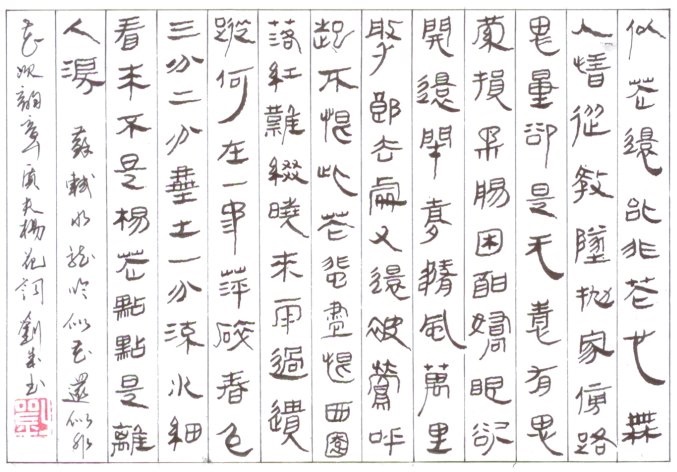 似花還似非花也無
人惜從教墜拋家傍路
思量卻是无有思
縈損柔腸困酣嬌眼欲
開還閉夢隨風萬里
尋郎去處又還被鶯呼
起不恨此花飛盡恨西園
落紅難綴曉來雨過遺
蹤何在一萍碎春色
三分二分塵土一分流水細
看來不是楊花點點是離
人淚 蘇軾水龍吟似花還似非
花次韻章質夫楊花詞 劉書